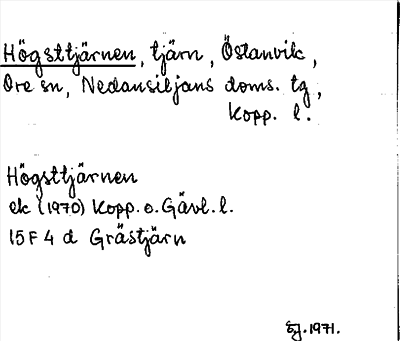 Högsttjärnen, tjärn, Östanvik,
Ore sn, Nedansiljans doms. tg,
Kopp. l.
Högsttjärnen
ek (1970) Kopp. o. Gävl. l.
15 F 4 d Grästjärn
Ej. 1971.